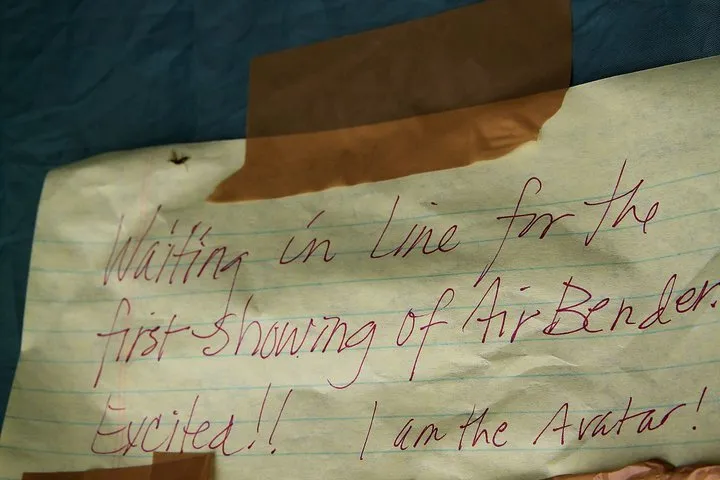 Waiting in line for the
first showing of AirBender.
Excited!! I am the Avatar!